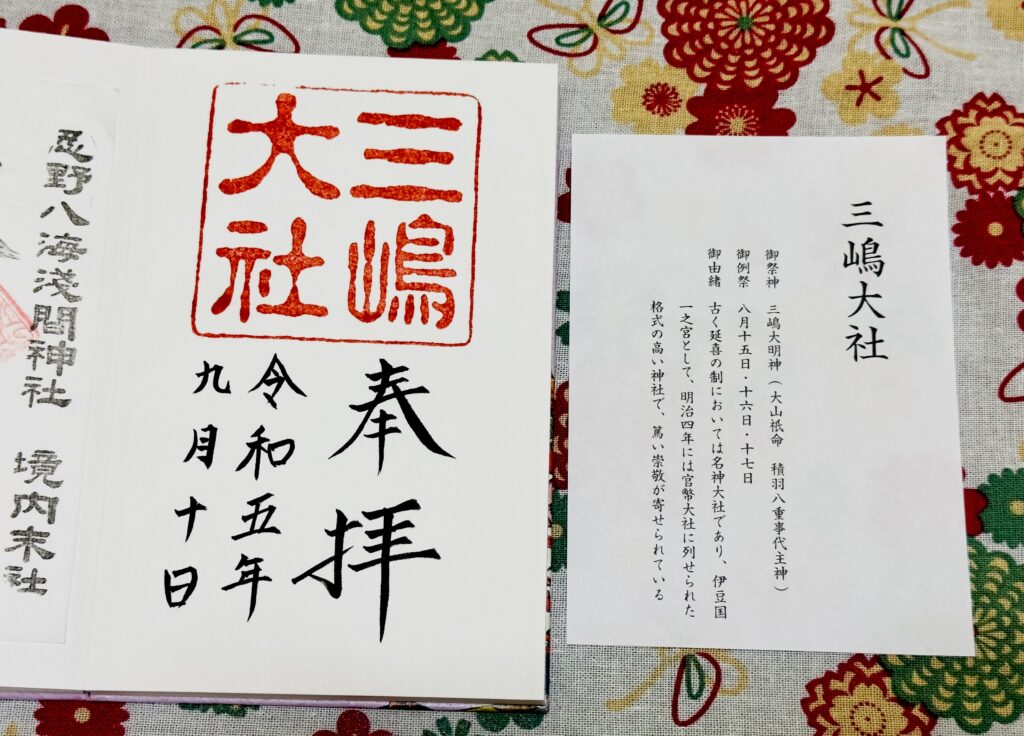 三嶋
大社
奉拝
令和五年
九月十日
忍野八海浅間神社 境内末社
三嶋大社
御祭神 三嶋大明神（大山祇命 積羽八重事代主神）
御例祭 八月十五日・十六日・十七日
御由緒 古く延喜の制においては名神大社であり、伊豆国
一之宮として、明治四年には官幣大社に列せられた
格式の高い神社で、篤い崇敬が寄せられている